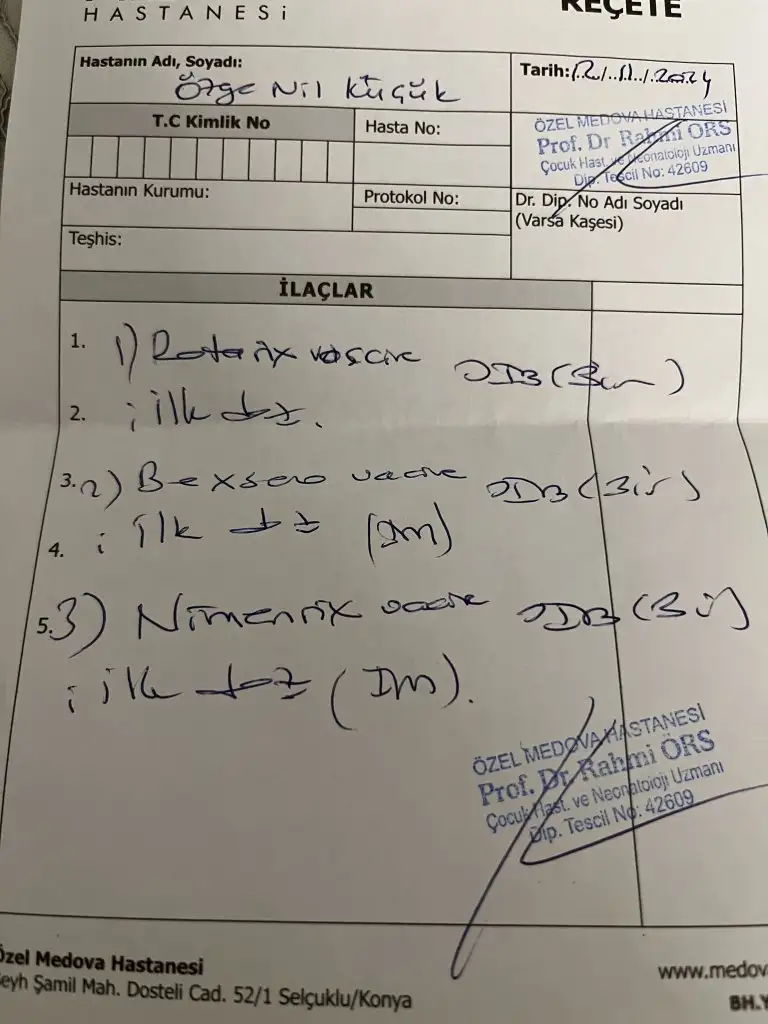 HASTANESİ
REÇETE
Hastanın Adı, Soyadı:
Özge Nil Küçük
Tarih: 12/11/2024
T.C Kimlik No
Hasta No:
ÖZEL MEDOVA HASTANESİ
Prof. Dr Rahmi ÖRS
Çocuk Hast. ve Neonatoloji Uzmanı
Dip. Tescil No: 42609
Hastanın Kurumu:
Protokol No:
Dr. Dip. No Adı Soyadı
(Varsa Kaşesi)
Teşhis:
İLAÇLAR
1. 1) Rotarix DIB (Bir)
2. ; ilk doz.
3. 2) Bexsero DIB (Bir)
4. ; ilk doz (IM)
5. 3) Nimenrix DIB (Bir)
; ilk doz (IM).
ÖZEL MEDOVA HASTANESİ
Prof. Dr. Rahmi ÖRS
Çocuk Hast. ve Neonatoloji Uzmanı
Dip. Tescil No: 42609
Özel Medova Hastanesi
eyh Şamil Mah. Dosteli Cad. 52/1 Selçuklu/Konya
www.medov
BH.Y